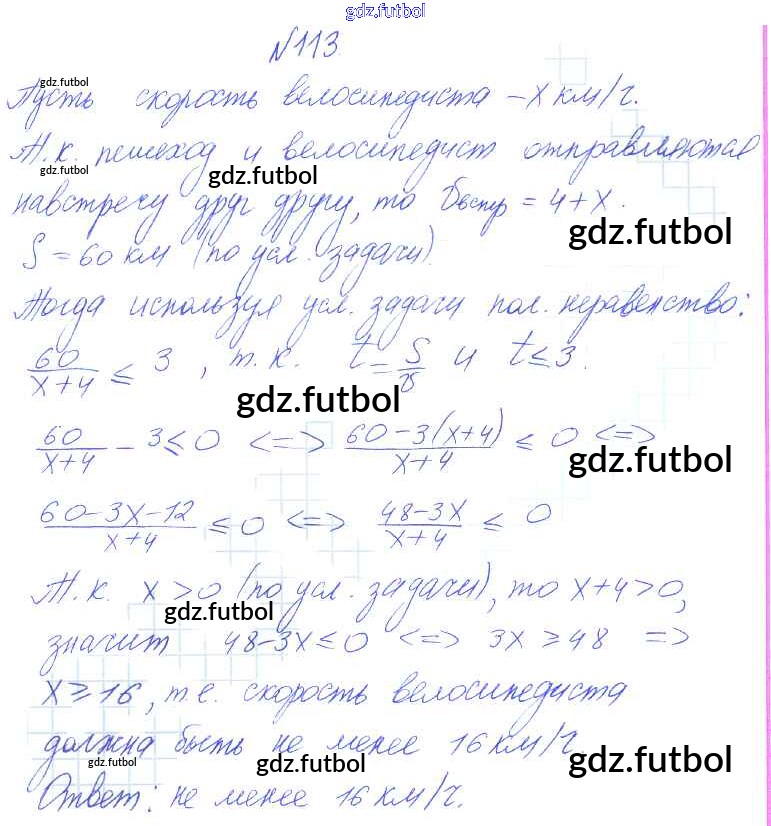 gdz.futbol
N 113.
gdz.futbol
Пусть скорость велосипедиста – x км/ч.
Т.к. пешеход и велосипедист отправляются
gdz.futbol gdz.futbol
навстречу друг другу, то = 4 + x.
gdz.futbol
S = 60 км (по усл. задачи).
Тогда используя усл. задачи пол. неравенство:
60/(x+4) ≤ 3, т.к. t = S/υ и t ≤ 3.
gdz.futbol
60/(x+4) – 3 ≤ 0 <=> (60–3(x+4))/(x+4) ≤ 0 <=>
gdz.futbol
(60–3x–12)/(x+4) ≤ 0 <=> (48–3x)/(x+4) ≤ 0
Т.к. x > 0 (по усл. задачи), то x+4 > 0,
gdz.futbol
значит 48–3x ≤ 0 <=> 3x ≥ 48 =>
x ≥ 16, т.е. скорость велосипедиста
должна быть не менее 16 км/ч.
gdz.futbol gdz.futbol gdz.futbol
Ответ: не менее 16 км/ч.